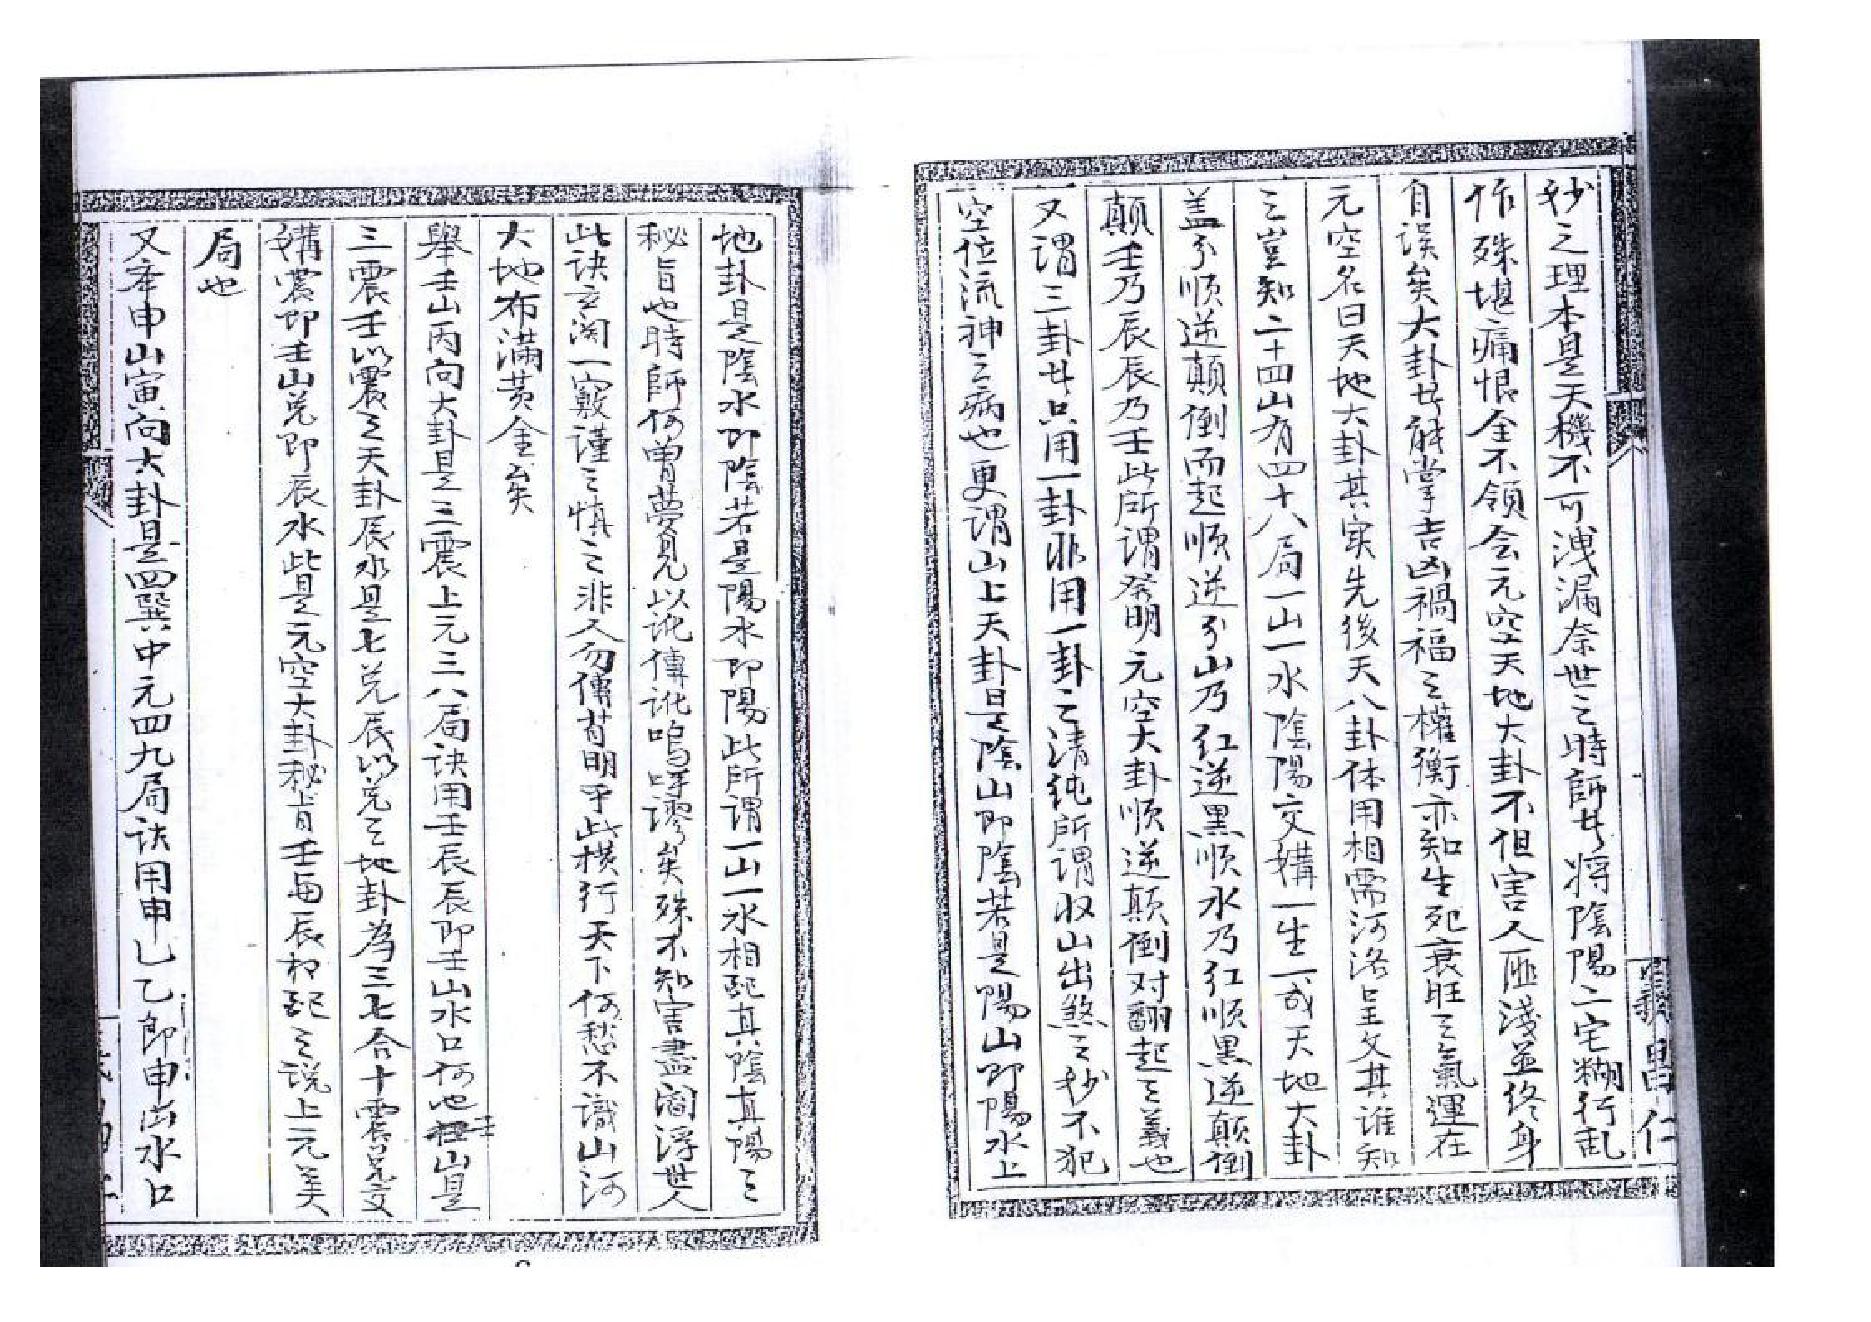 妙之理本是天機不可洩漏奈世之時師廿將陰陽二宅糊行乱
作殊堪痛恨全不領会元空天地大卦不但害人匪淺並终身
自误矣大卦廿能掌吉凶禍福之權衡亦知生死衰旺之氣運在
元空名曰天地大卦其实先後天八卦体用相需河洛呈文其谁知
之豈知二十四山有四十八局一山一水陰陽交媾一生一成天地大卦
盖分順逆顛倒而起順逆分山乃红逆黑順水乃红順黑逆顛倒
顛壬乃辰辰乃壬此所谓發明元空大卦順逆顛倒对翻起之義也
又谓三卦廿只用一卦非用一卦之清纯所谓收山出煞之妙不犯
空位流神之病也更谓山上天卦是陰山即陰若是陽山即陽水上
地卦是陰水即陰若是陽水即陽此所谓一山一水相配真陰真陽之
秘旨也時師何曾夢見以讹傳讹嗚呼謬矣殊不知害盡閻浮世人
此诀玄関一竅谨之慎之非人勿傳苟明乎此横行天下何愁不識山河
大地布滿黄金矣
舉壬山丙向大卦是三震上元三八局诀用壬辰辰即壬山水口何也壬山是
三震壬以震之天卦辰水是七兑辰以兑之地卦為三七合十震兑交
媾震即壬山兑即辰水此是元空大卦秘旨壬与辰相配之说上元美
局也
又本申山寅向大卦是四巽中元四九局诀用申乙乙即申出水口